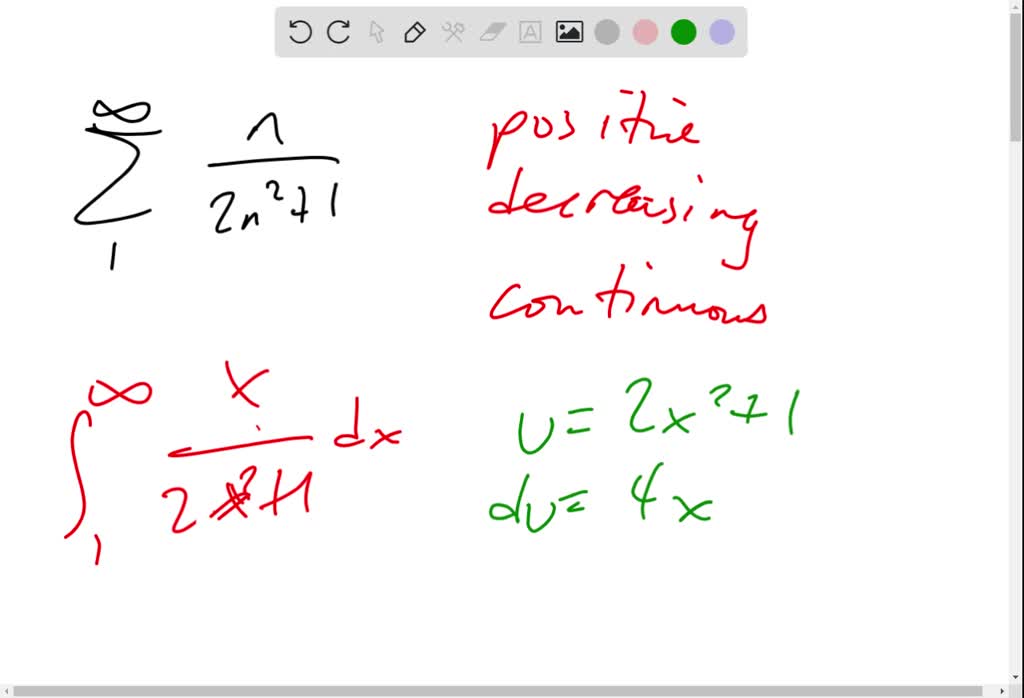 ∞
∑ n/(2n²+1)
1
positive
decreasing
continuous
∞
∫ x/(2x²+1) dx
1
u= 2x²+1
du= 4x